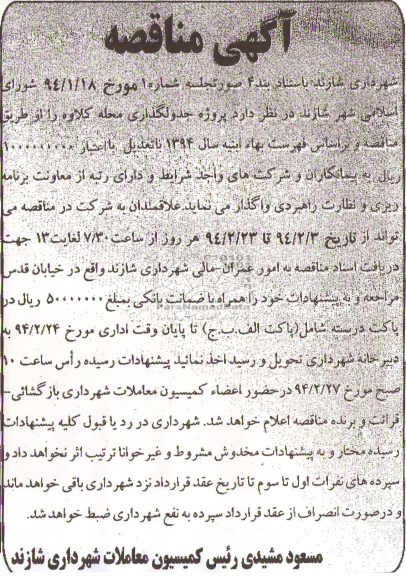 آگهی مناقصه
شهرداری شازند باستناد بند۴ صورتجلسه شماره۱ مورخ ۹۴/۱/۱۸ شورای
اسلامی شهر شازند در نظر دارد پروژه جدولگذاری محله کلاوه را از طریق
مناقصه و براساس فهرست بهاء ابنیه سال ۱۳۹۴ باتعدیل بااعتبار
ریال به پیمانکاران و شرکت های واجد شرایط و دارای رتبه از معاونت برنامه
ریزی و نظارت راهبردی واگذار می نماید.علاقمندان به شرکت در مناقصه می
تواند از تاریخ ۹۴/۲/۳ تا ۹۴/۲/۲۳ هر روز از ساعت۷/۳۰ لغایت۱۳ جهت
دریافت اسناد مناقصه به امور عمران-مالی شهرداری شازند واقع در خیابان قدس
مراجعه و به پیشنهادات خود را همراه با ضمانت بانکی بمبلغ ۵۰۰۰۰۰۰۰ ریال در
پاکت دربسته شامل(پاکت الف.ب.ج) تا پایان وقت اداری مورخ ۹۴/۲/۲۴ به
دبیرخانه شهرداری تحویل و رسید اخذ نمائید پیشنهادات رسیده رأس ساعت ۱۰
صبح مورخ ۹۴/۲/۲۷ درحضور اعضاء کمیسیون معاملات شهرداری بازگشائی-
قرائت و برنده مناقصه اعلام خواهد شد. شهرداری در رد یا قبول کلیه پیشنهادات
رسیده مختار و به پیشنهادات مخدوش مشروط و غیرخوانا ترتیب اثر نخواهد داد و
سپرده های نفرات اول تا سوم تا تاریخ عقد قرارداد نزد شهرداری باقی خواهد ماند
و درصورت انصراف از عقد قرارداد سپرده به نفع شهرداری ضبط خواهد شد.
مسعود مشیدی رئیس کمیسیون معاملات شهرداری شازند